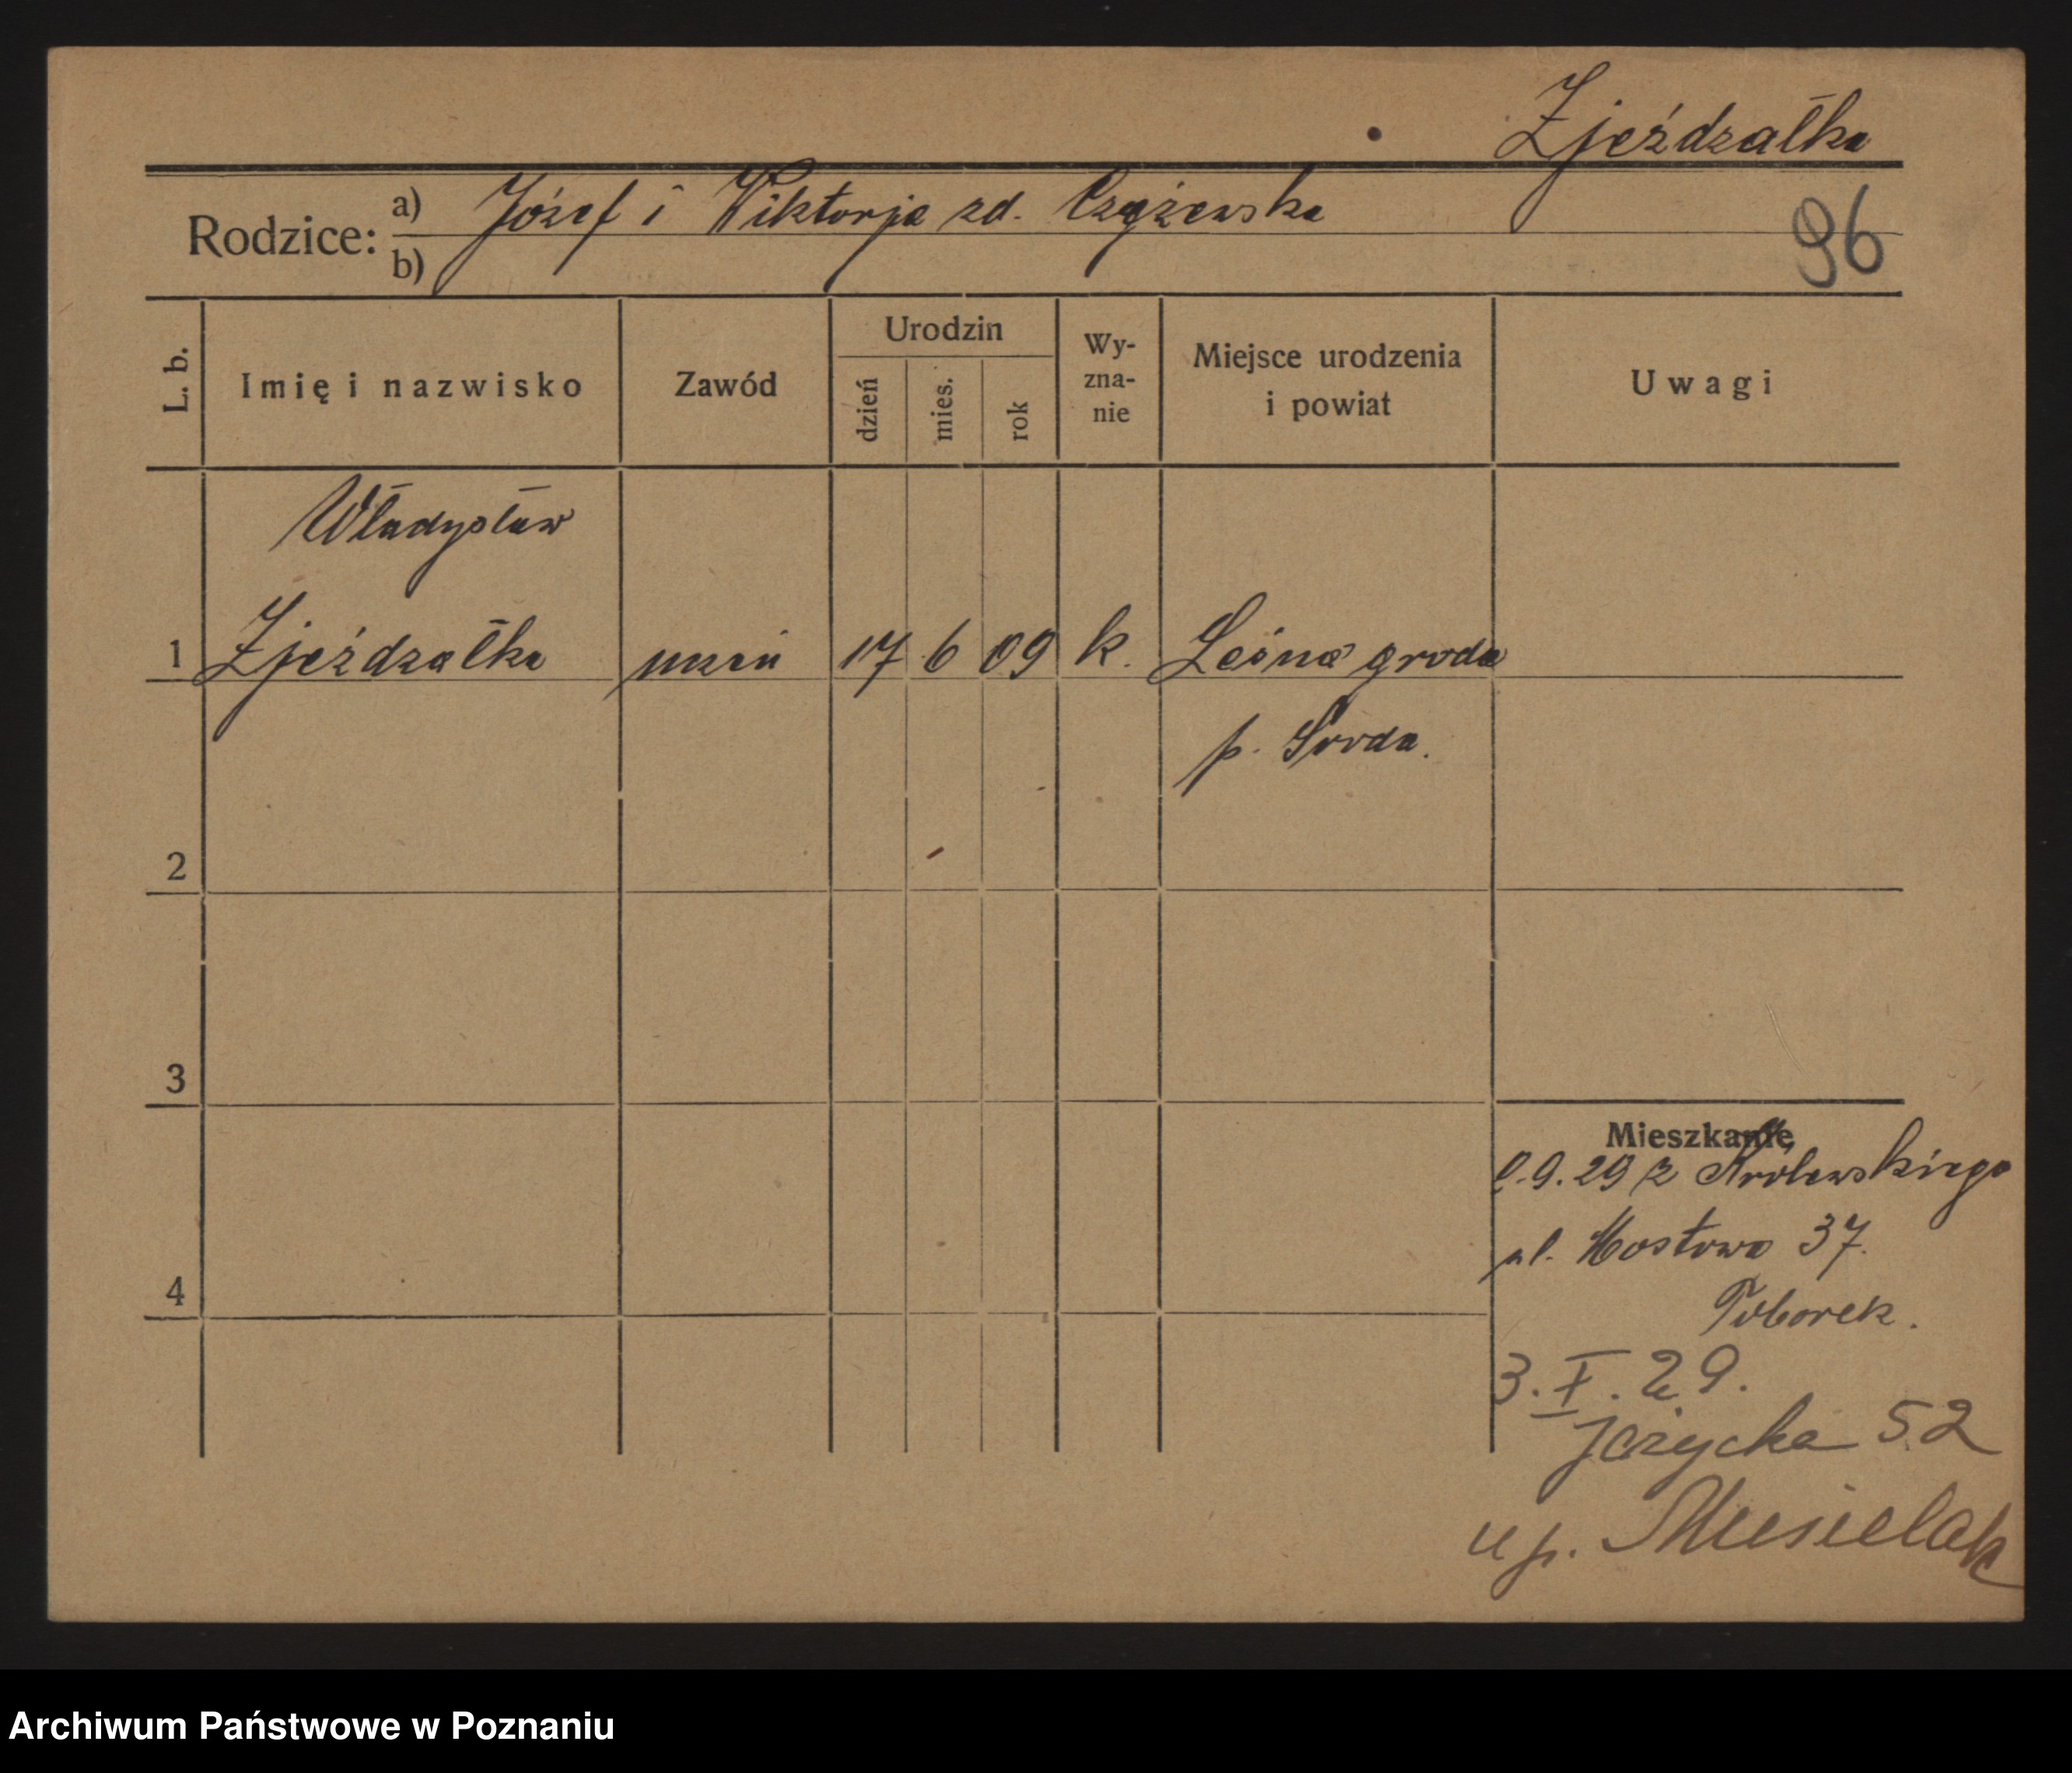 Zjeżdzałka
Rodzice: a) Józef i Wiktorja zd. Czyżewska
b)
96
L. b.
Imię i nazwisko
Zawód
Urodzin
dzień
mies.
rok
Wy-
zna-
nie
Miejsce urodzenia
i powiat
Uwagi
Władysław
1 Zjeżdzałka uczeń 17 6 09 k. Leśna groda
p. Środa.
2
3
4
Mieszkanie
9.29 z Królewskiego
ul. Mostowa 37.
3.X.29.
Jeżycka 52
u p. Musielak
Archiwum Państwowe w Poznaniu